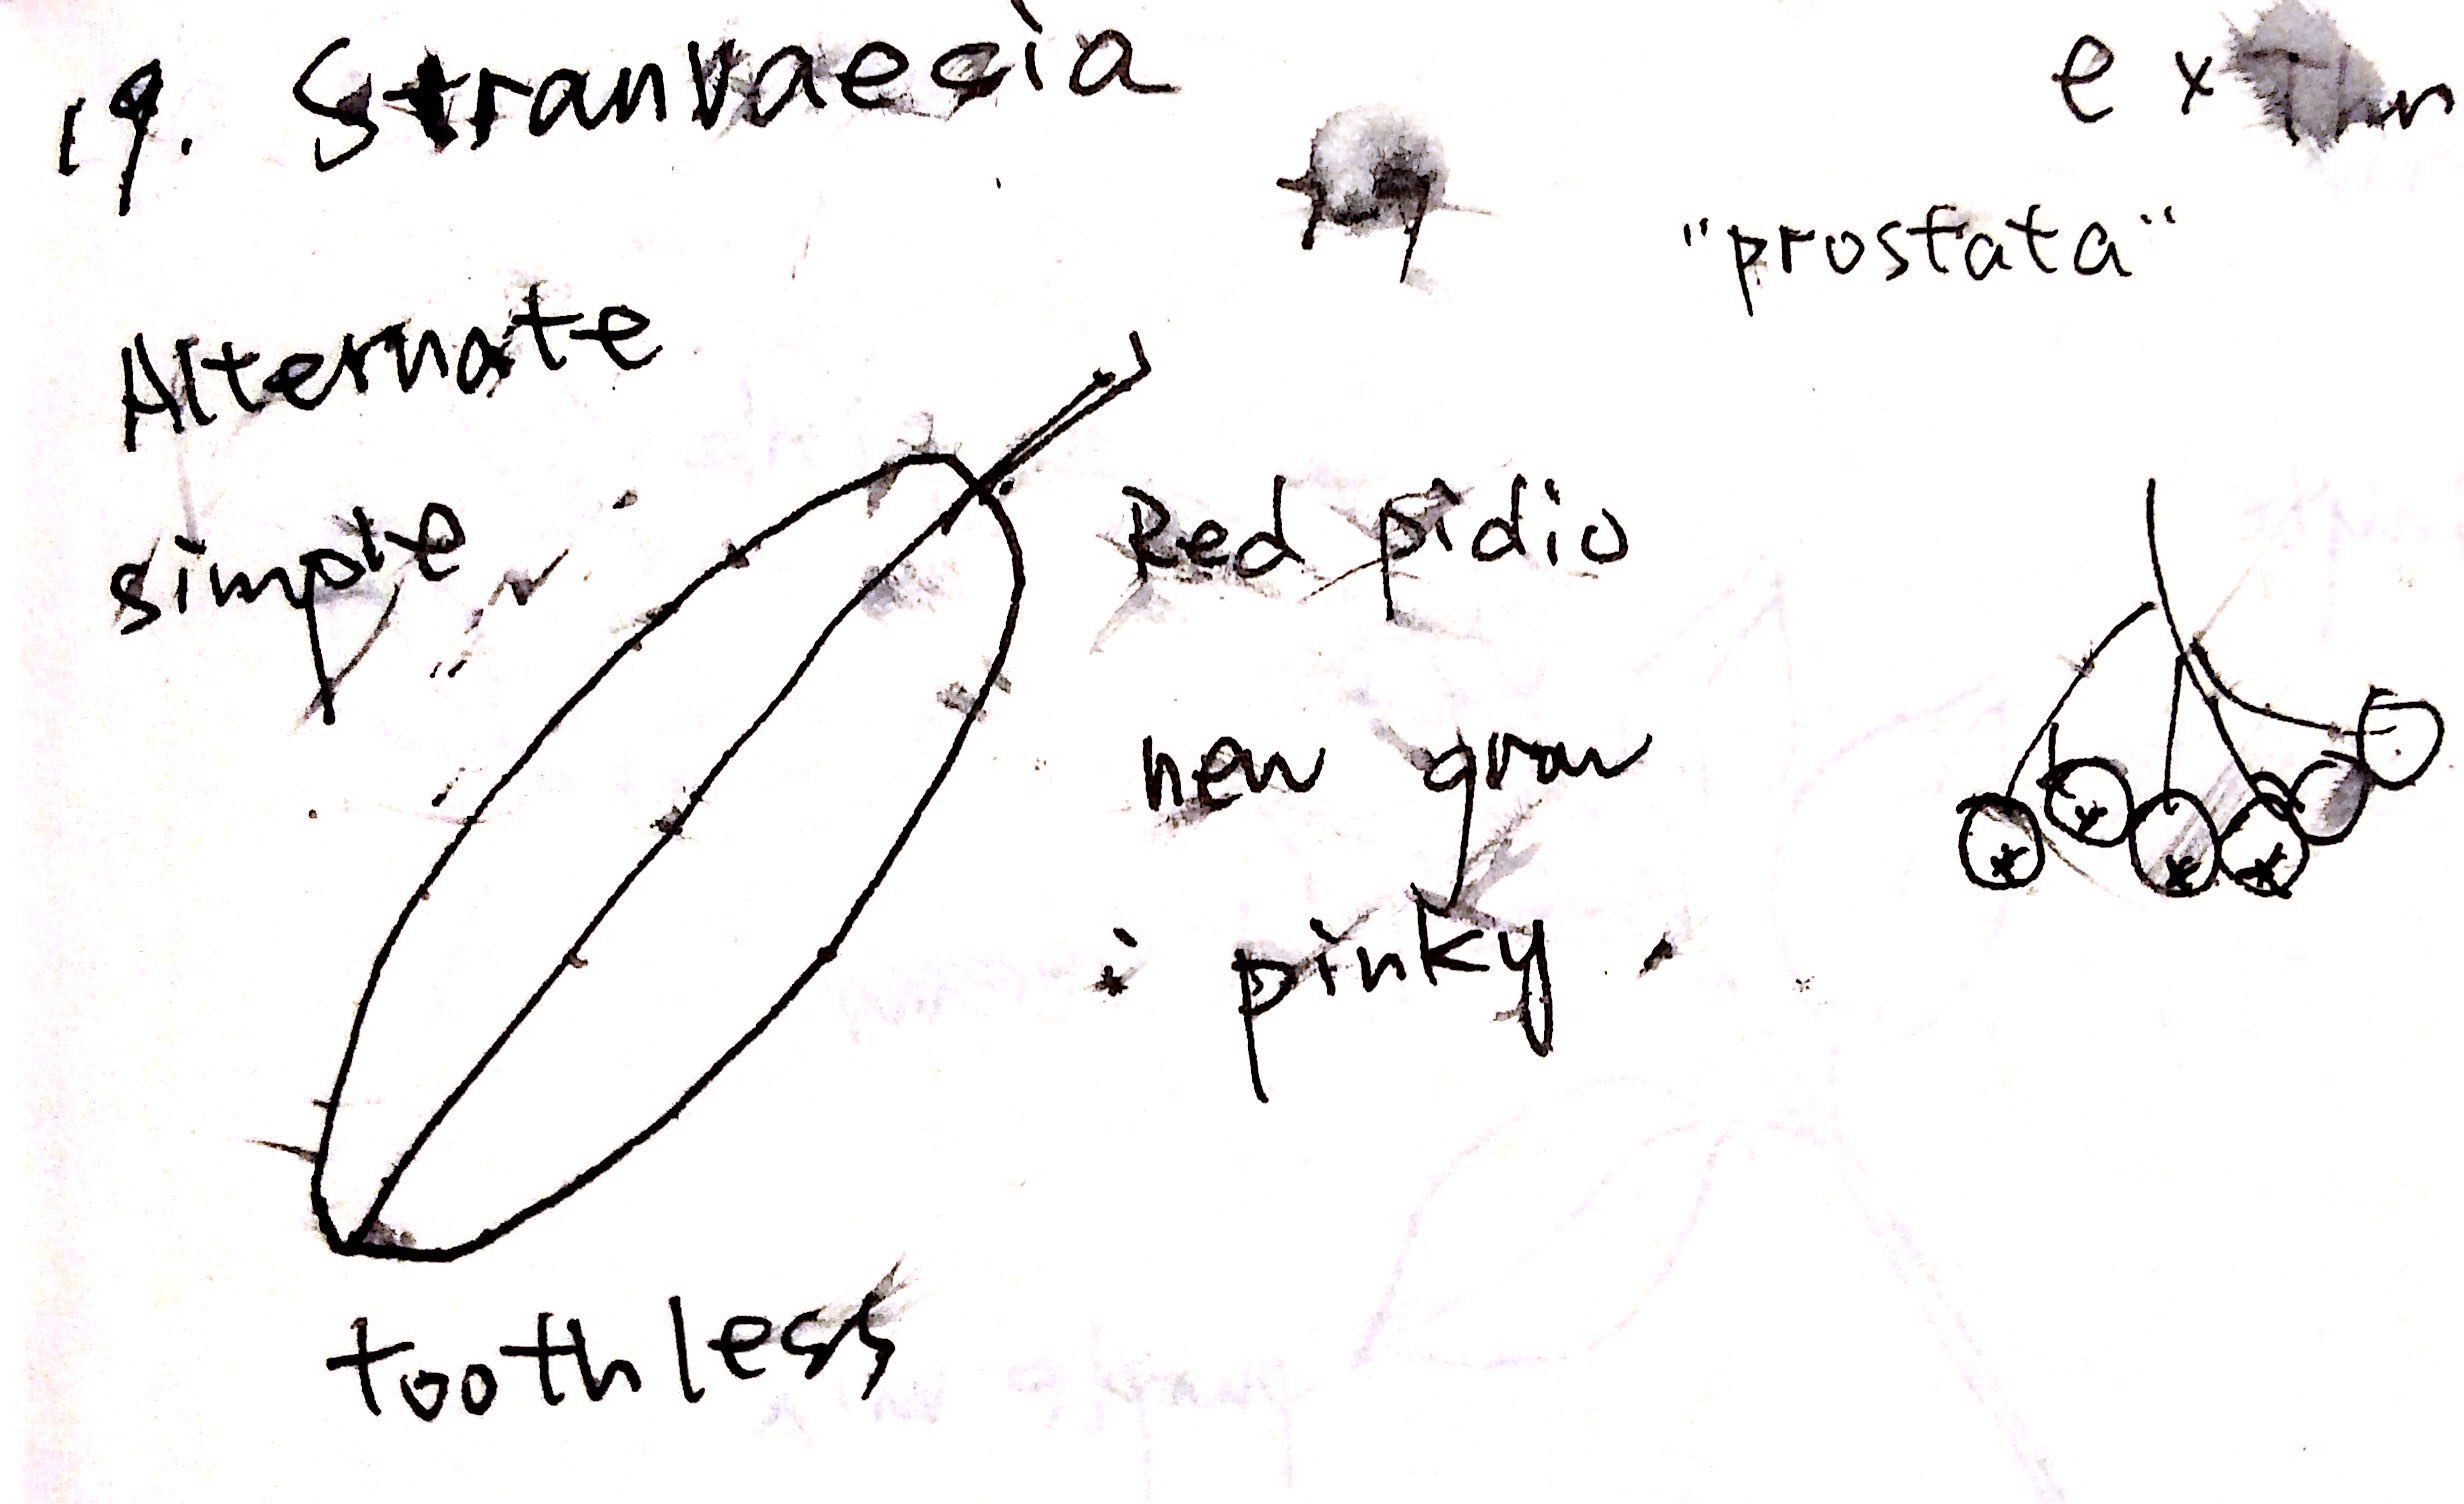 19. Stranvaecia
"prostata"
Alternate
simple
Red pidio
new grow
pinky
toothless